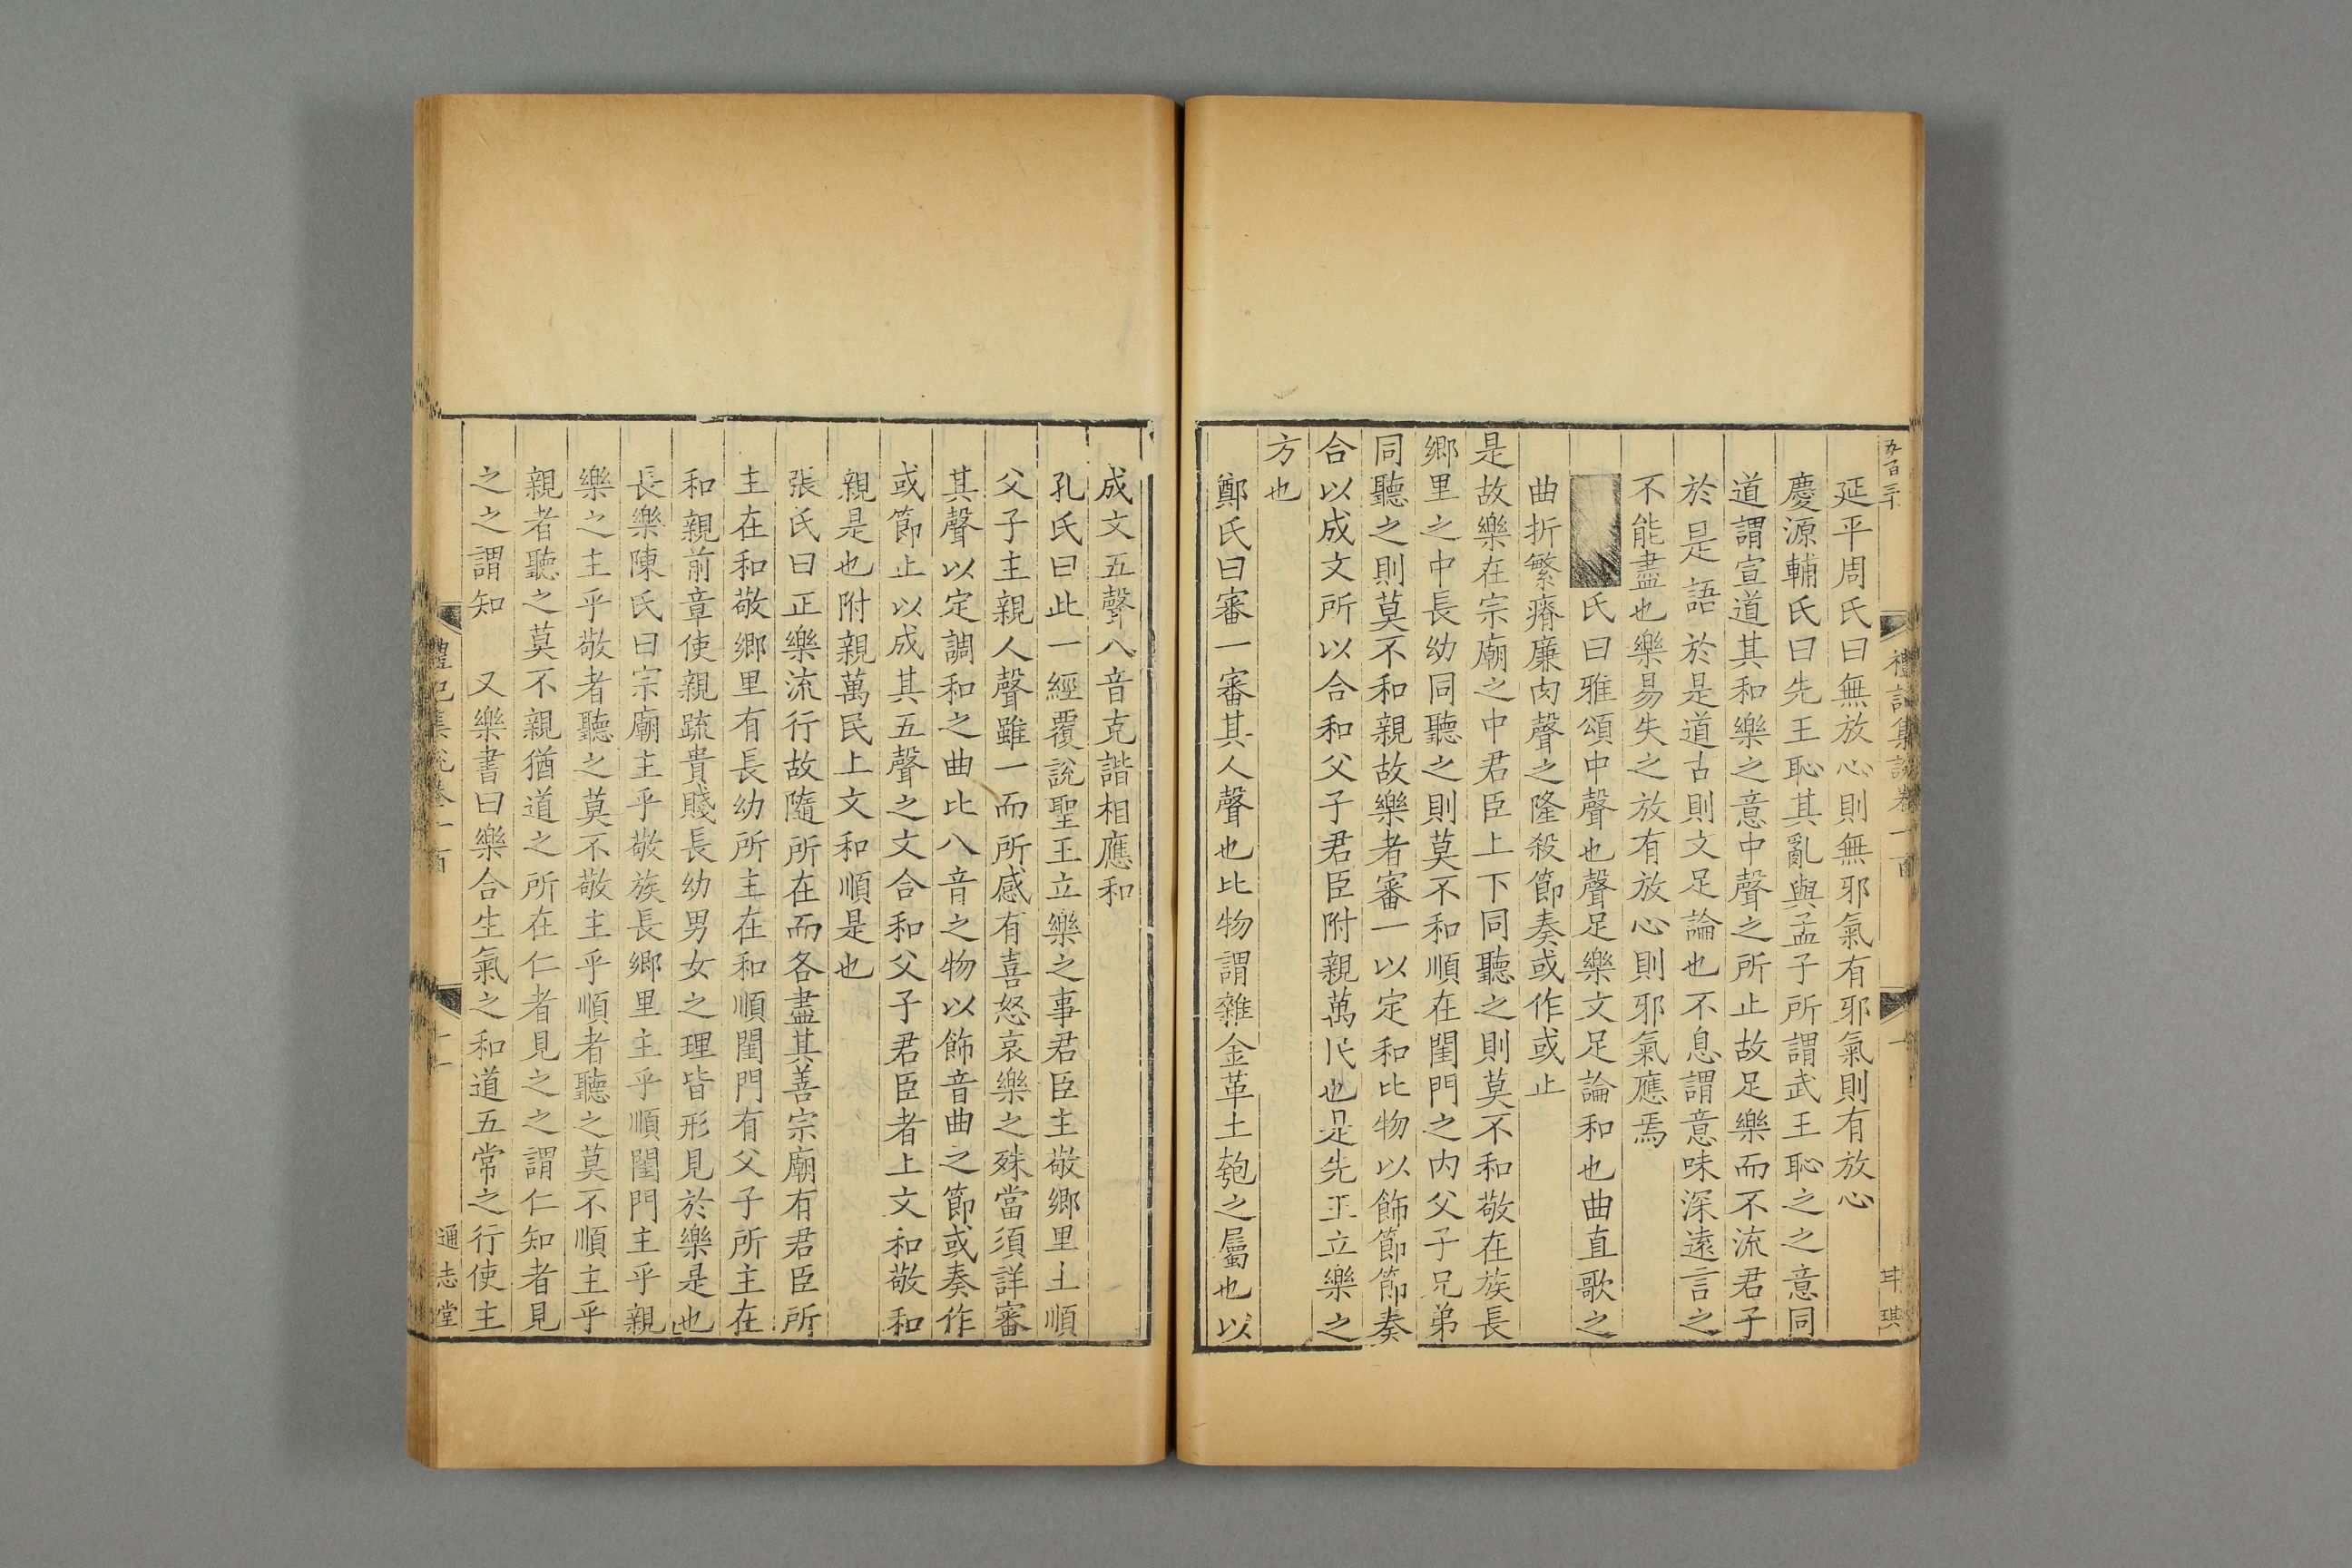 五百三十
禮記集說卷一百
延平周氏曰無放心則無邪氣有邪氣則有放心
慶源輔氏曰先王恥其亂與孟子所謂武王恥之之意同
道謂宣道道其和樂之意中聲之所止故足樂而不流君子
於是語於是道古則文足論也不息謂意味深遠言之
不能盡也樂易失之放有放心則邪氣應焉
氏曰雅頌中聲也聲足樂文足論和也曲直歌之
曲折繁瘠廉肉聲之隆殺節奏或作或止
是故樂在宗廟之中君臣上下同聽之則莫不和敬在族長
鄉里之中長幼同聽之則莫不和順在閨門之内父子兄弟
同聽之則莫不和親故樂者審一以定和比物以飾節節奏
合以成文所以合和父子君臣附親萬民也是先王立樂之
方也
鄭氏曰審一審其人聲也比物謂雜金革土匏之屬也以
成文五聲八音克諧相應和
孔氏曰此一經覆說聖王立樂之事君臣主敬鄉里主順
父子主親人聲雖一而所感有喜怒哀樂之殊當須詳審
其聲以定調和之曲比八音之物以飾音曲之節或奏作
或節止以成其五聲之文合和父子君臣者上文和敬和
親是也附親萬民上文和順是也
張氏曰正樂流行故隨所在而各盡其善宗廟有君臣所
主在和敬鄉里有長幼所主在和順閨門有父子所主在
和親前章使親疏貴賤長幼男女之理皆形見於樂是也
長樂陳氏曰宗廟主乎敬族長鄉里主乎順閨門主乎親
樂之主乎敬者聽之莫不敬主乎順者聽之莫不順主乎
親者聽之莫不親猶道之所在仁者見之之謂仁知者見
之之謂知　又樂書曰樂合生氣之和道五常之行使主
禮記集說卷一百
十一
通志堂